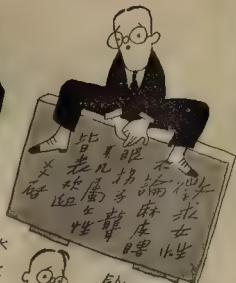 徵求女性
不論麻皮瞎
眼拐子聾
耳凡屬女性
皆表歡迎
炎啓